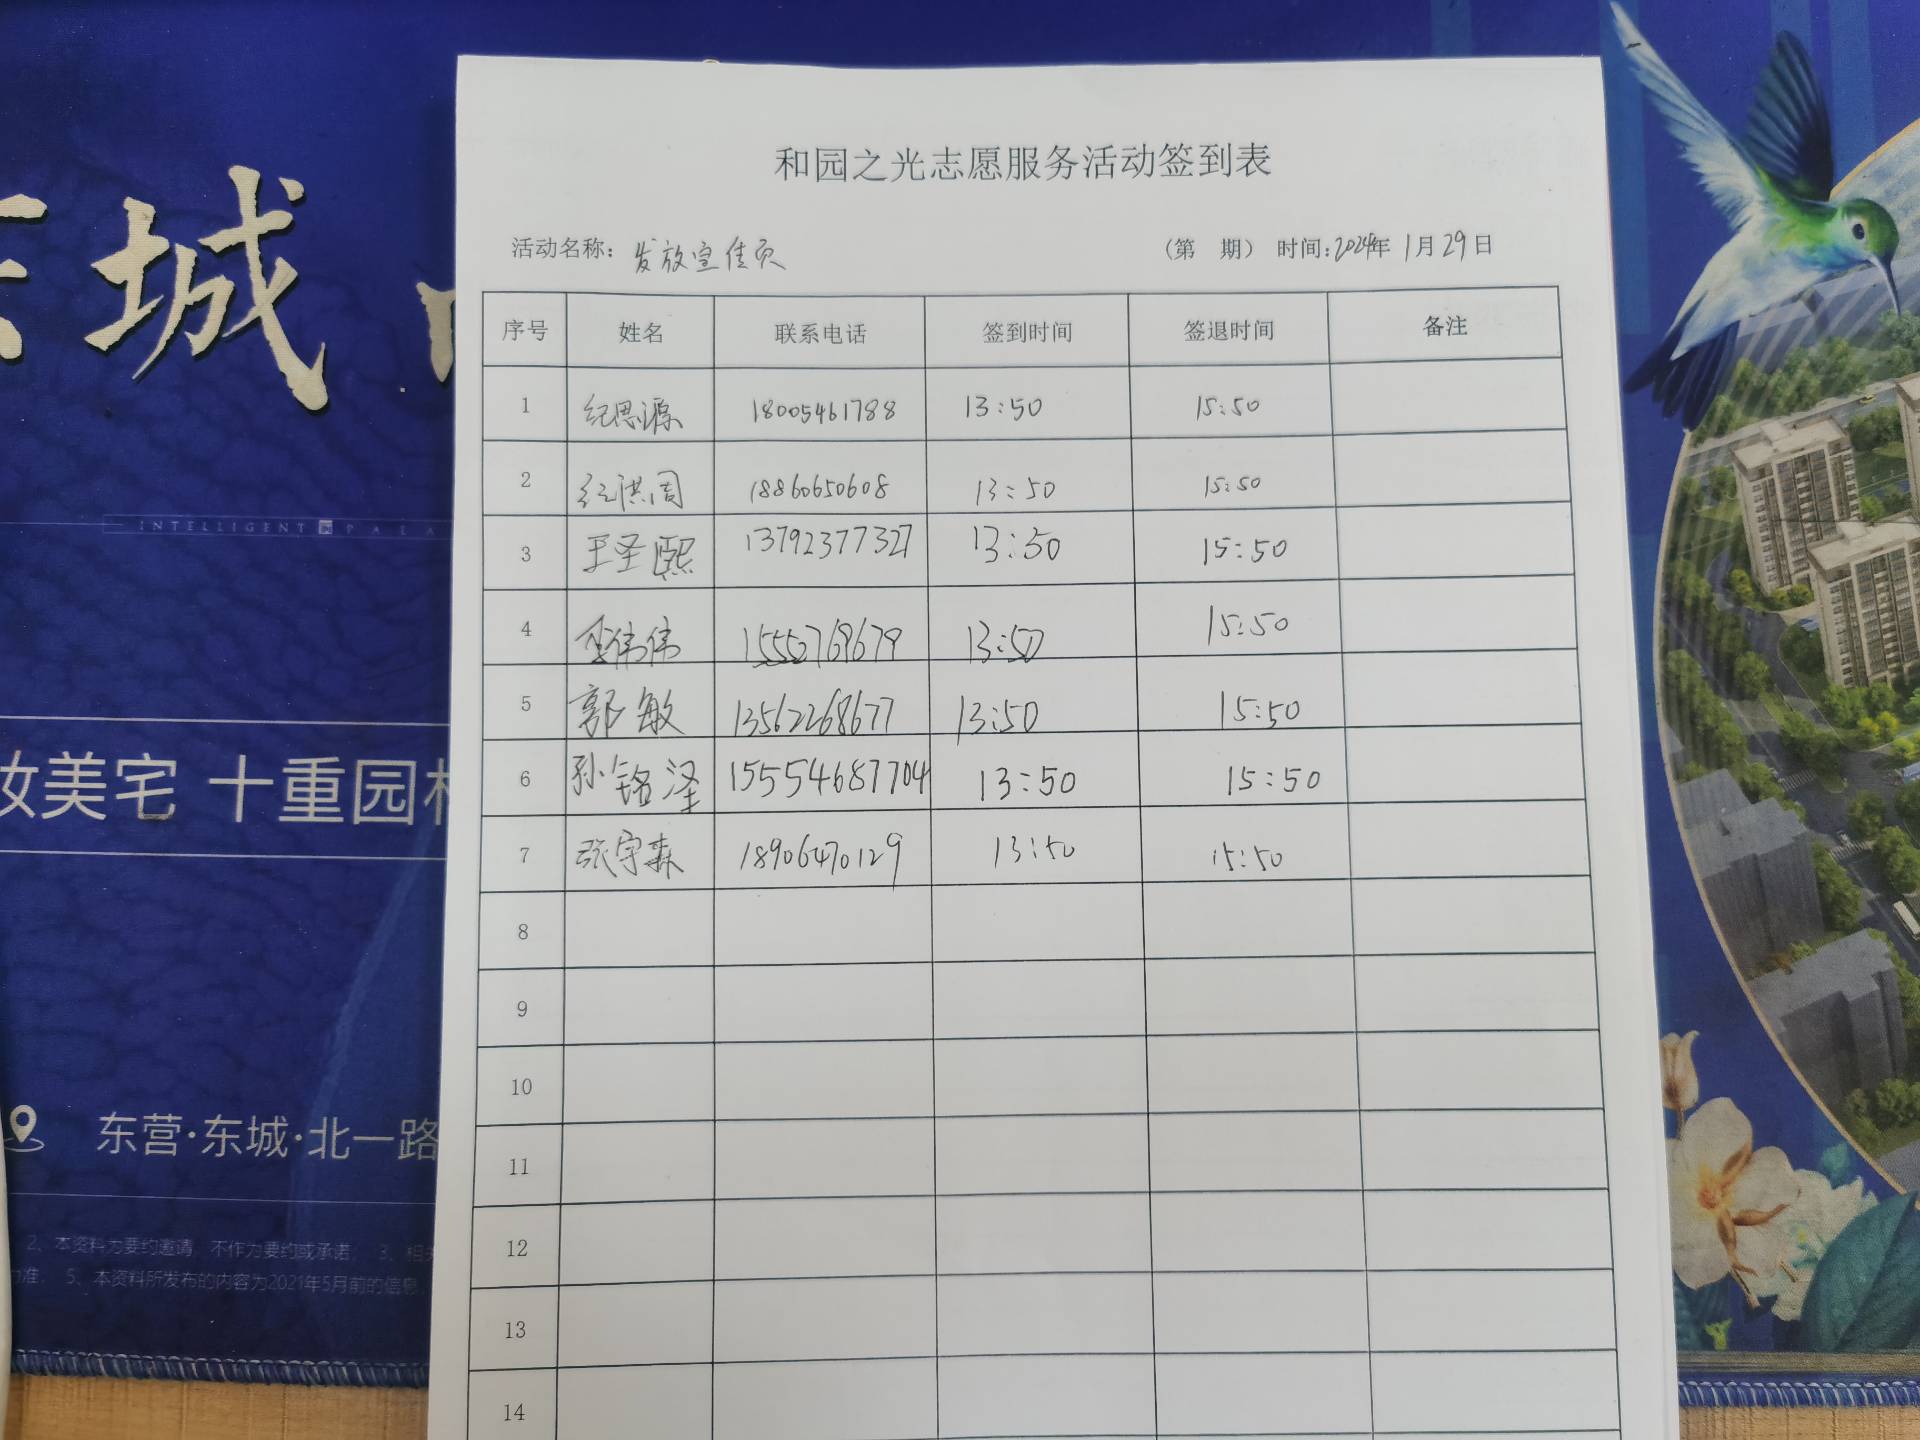 和园之光志愿服务活动签到表
活动名称：发放宣传页 （第 期） 时间：2024年 1月29日
序号 姓名 联系电话 签到时间 签退时间 备注
1 纪思源 18005461788 13:50 15:50
2 纪洪周 18860650608 13:50 15:50
3 王圣熙 13792377327 13:50 15:50
4 李伟伟 15552769679 13:50 15:50
5 郭敏 13562268677 13:50 15:50
6 孙铭泽 15554687704 13:50 15:50
7 张宇森 18906470129 13:50 15:50
8
9
10
11
12
13
14
东城
INTELLIGENT PALA
妆美宅 十重园林
东营·东城·北一路
2、本资料为要约邀请，不作为要约或承诺； 3、相关
为准． 5、本资料所发布的内容为2021年5月前的信息，